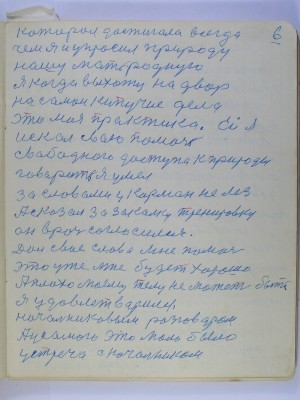 6
которая достигала всегда
чем я и упросил природу
нашу матеродную
Я когда выхожу на двор
на самои кипучие дела
это моя практика. Ей я
искал сваю помочь
свабодного доступа к природи
говарить я умел
за словами у карман не лез
А сказал за закалку тренировку
он врач согласился.
Дал свае слово мне помоч
это уже мне будет хорошо
А плохо моему телу не может быть
Я удовлетварилси
началниковым разговаром
А у самого это мало было
устреча с началником